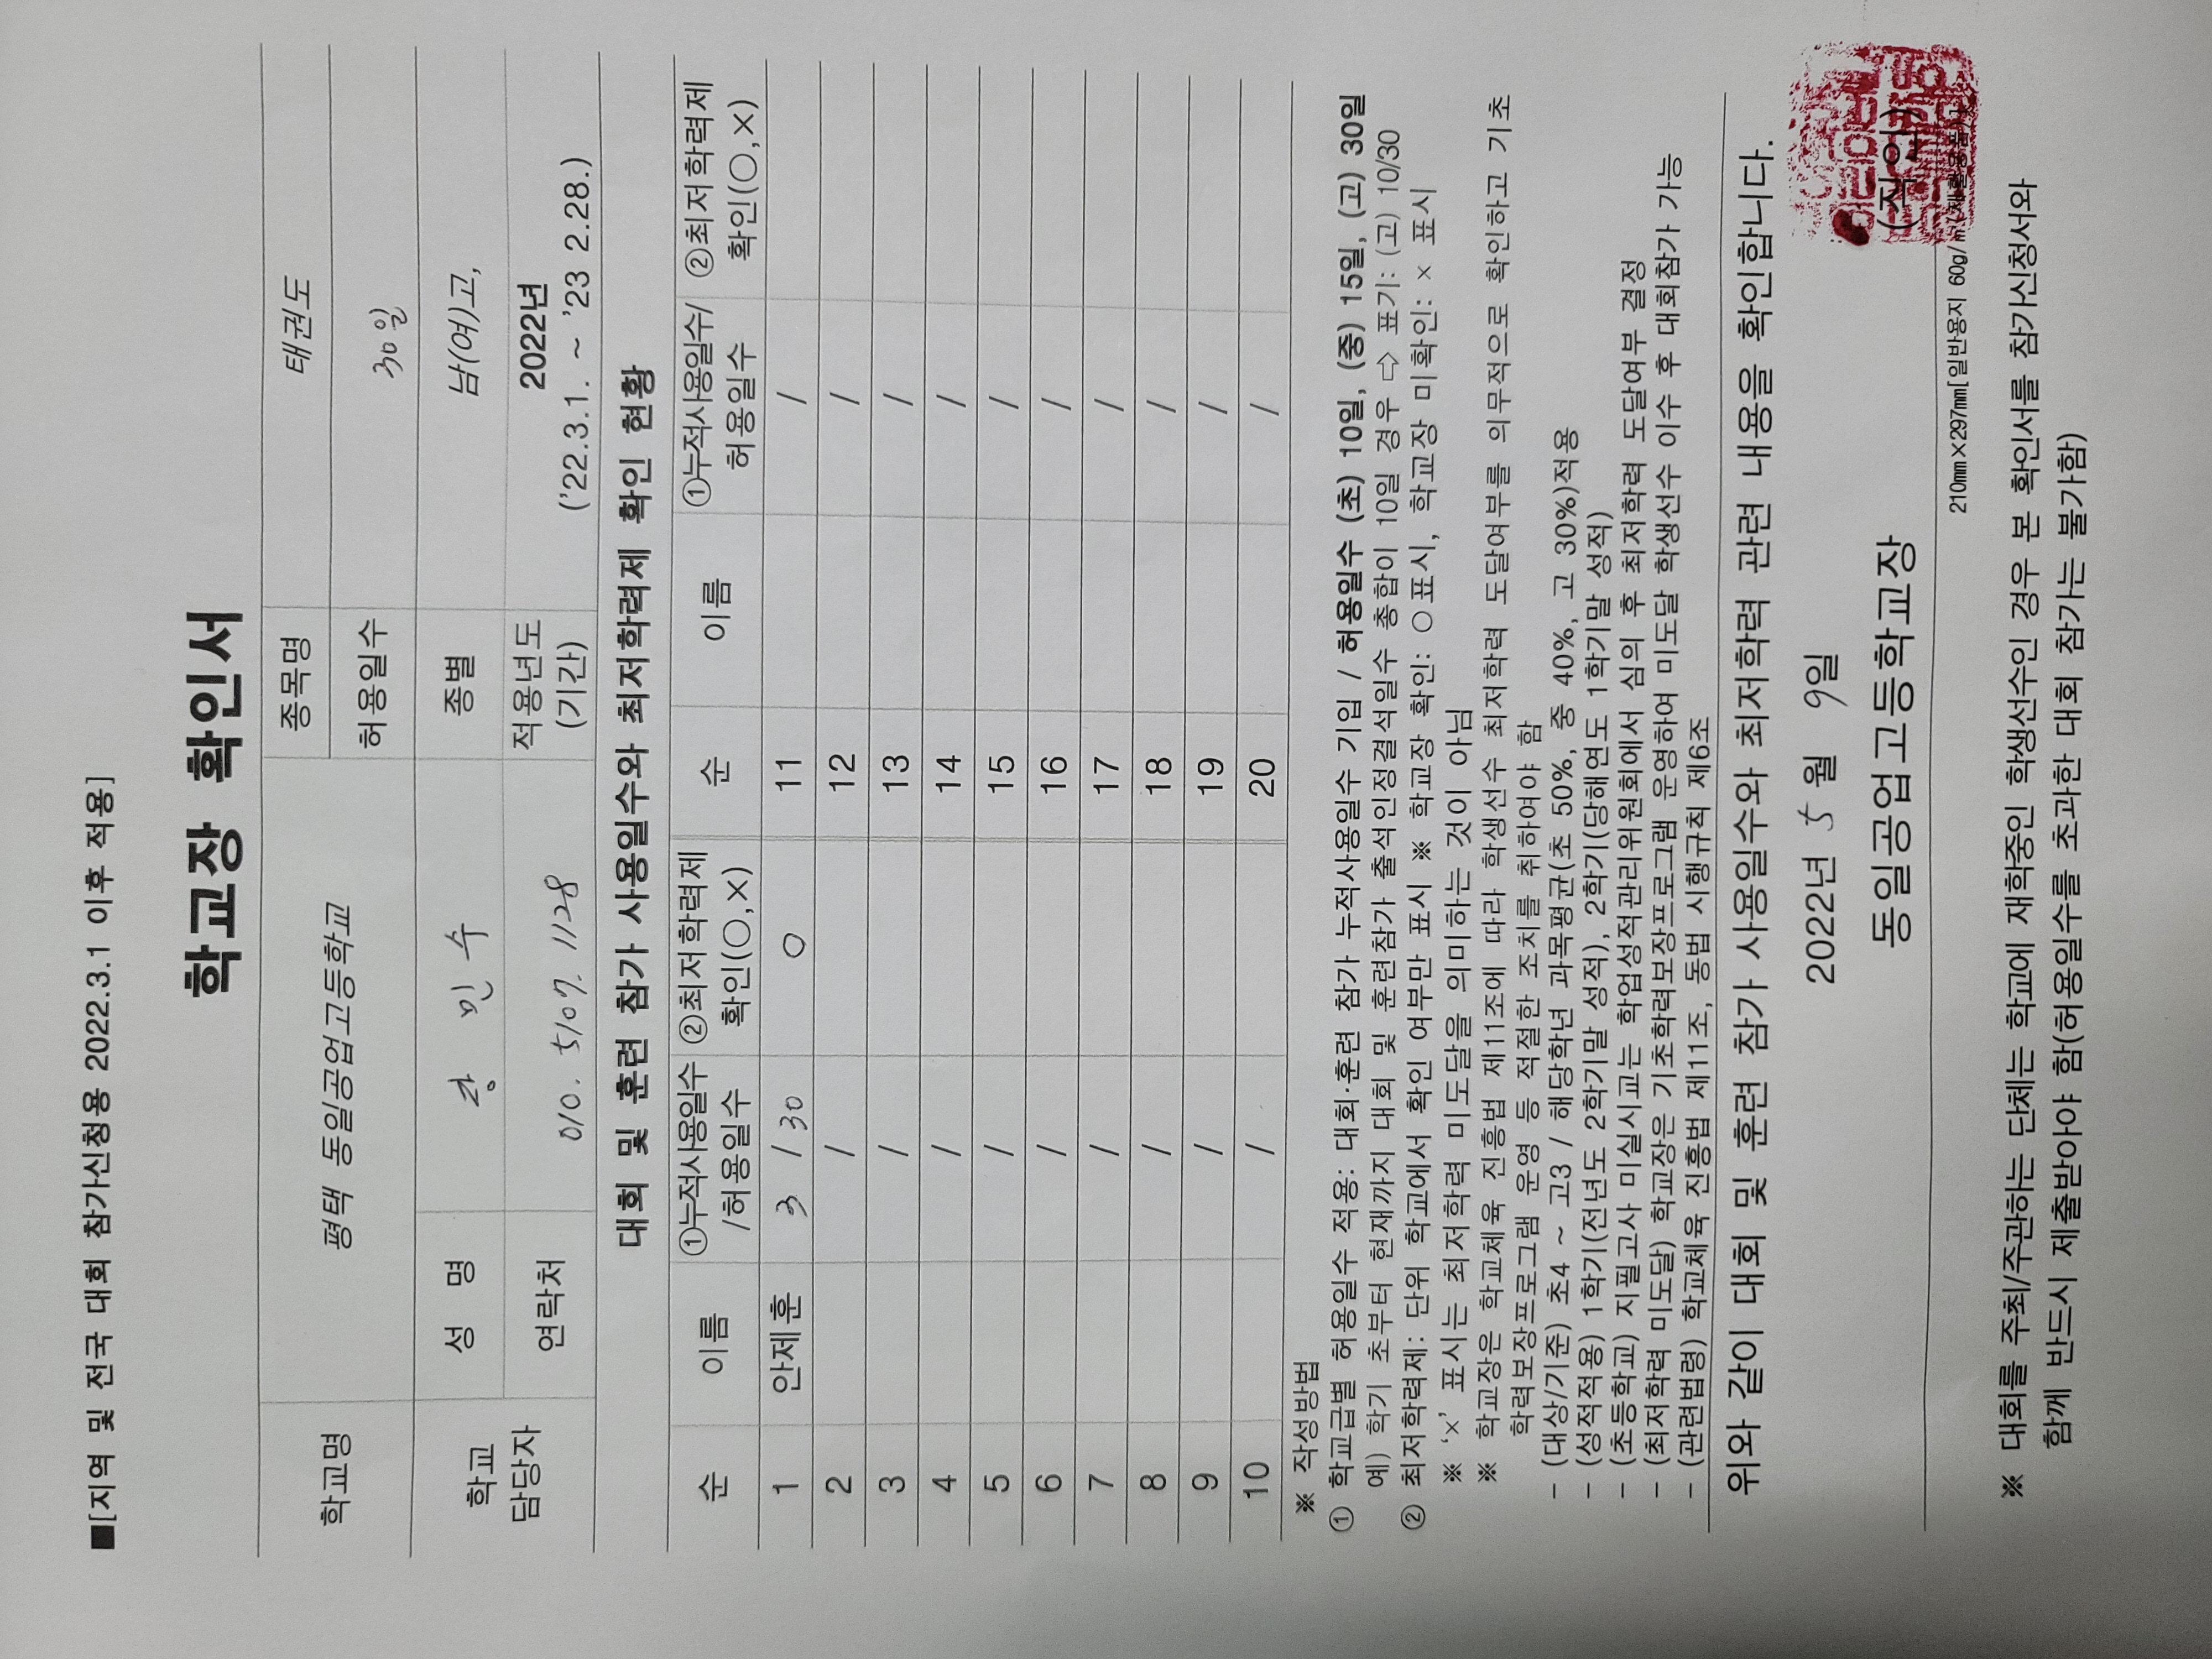 ■[지역 및 전국 대회 참가신청용 2022.3.1 이후 적용]
학교장 확인서
학교명 평택 동일공업고등학교 종목명 태권도
허용일수 30일
학교 담당자 성 명 민 수 종별 남(여)고,
연락처 010. 5107. 1128 적용년도 (기간) 2022년 ('22.3.1. ~ '23 2.28.)
대회 및 훈련 참가 사용일수와 최저학력제 확인 현황
순 이름 ①누적사용일수 /허용일수 ②최저학력제 확인(○,×) 순 이름 ①누적사용일수/ 허용일수 ②최저학력제 확인(○,×)
1 안제훈 3 / 30 ○ 11 /
2 / 12 /
3 / 13 /
4 / 14 /
5 / 15 /
6 / 16 /
7 / 17 /
8 / 18 /
9 / 19 /
10 / 20 /
※ 작성방법
① 학교급별 허용일수 적용: 대회·훈련 참가 누적사용일수 기입 / 허용일수 (초) 10일, (중) 15일, (고) 30일
예) 학기 초부터 현재까지 대회 및 훈련참가 출석인정결석일수 총합이 10일 경우 ⇨ 표기: (고) 10/30
② 최저학력제: 단위 학교에서 확인 여부만 표시 ※ 학교장 확인: ○ 표시, 학교장 미확인: × 표시
※ '×' 표시는 최저학력 미도달을 의미하는 것이 아님
※ 학교장은 학교체육 진흥법 제11조에 따라 학생선수 최저학력 도달여부를 의무적으로 확인하고 기초
학력보장프로그램 운영 등 적절한 조치를 취하여야 함
- (대상/기준) 초4 ~ 고3 / 해당학년 과목평균(초 50%, 중 40%, 고 30%)적용
- (성적적용) 1학기(전년도 2학기말 성적), 2학기(당해연도 1학기말 성적)
- (초등학교) 지필고사 미실시교는 학업성적관리위원회에서 심의 후 최저학력 도달여부 결정
- (최저학력 미도달) 학교장은 기초학력보장프로그램 운영하여 미도달 학생선수 이수 후 대회참가 가능
- (관련법령) 학교체육 진흥법 제11조, 동법 시행규칙 제6조
위와 같이 대회 및 훈련 참가 사용일수와 최저학력 관련 내용을 확인합니다.
2022년 5 월 9일
동일공업고등학교장 (직인)
210㎜×297㎜[일반용지 60g/㎡(재활용품)]
※ 대회를 주최/주관하는 단체는 학교에 재학중인 학생선수인 경우 본 확인서를 참가신청서와
함께 반드시 제출받아야 함(허용일수를 초과한 대회 참가는 불가함)